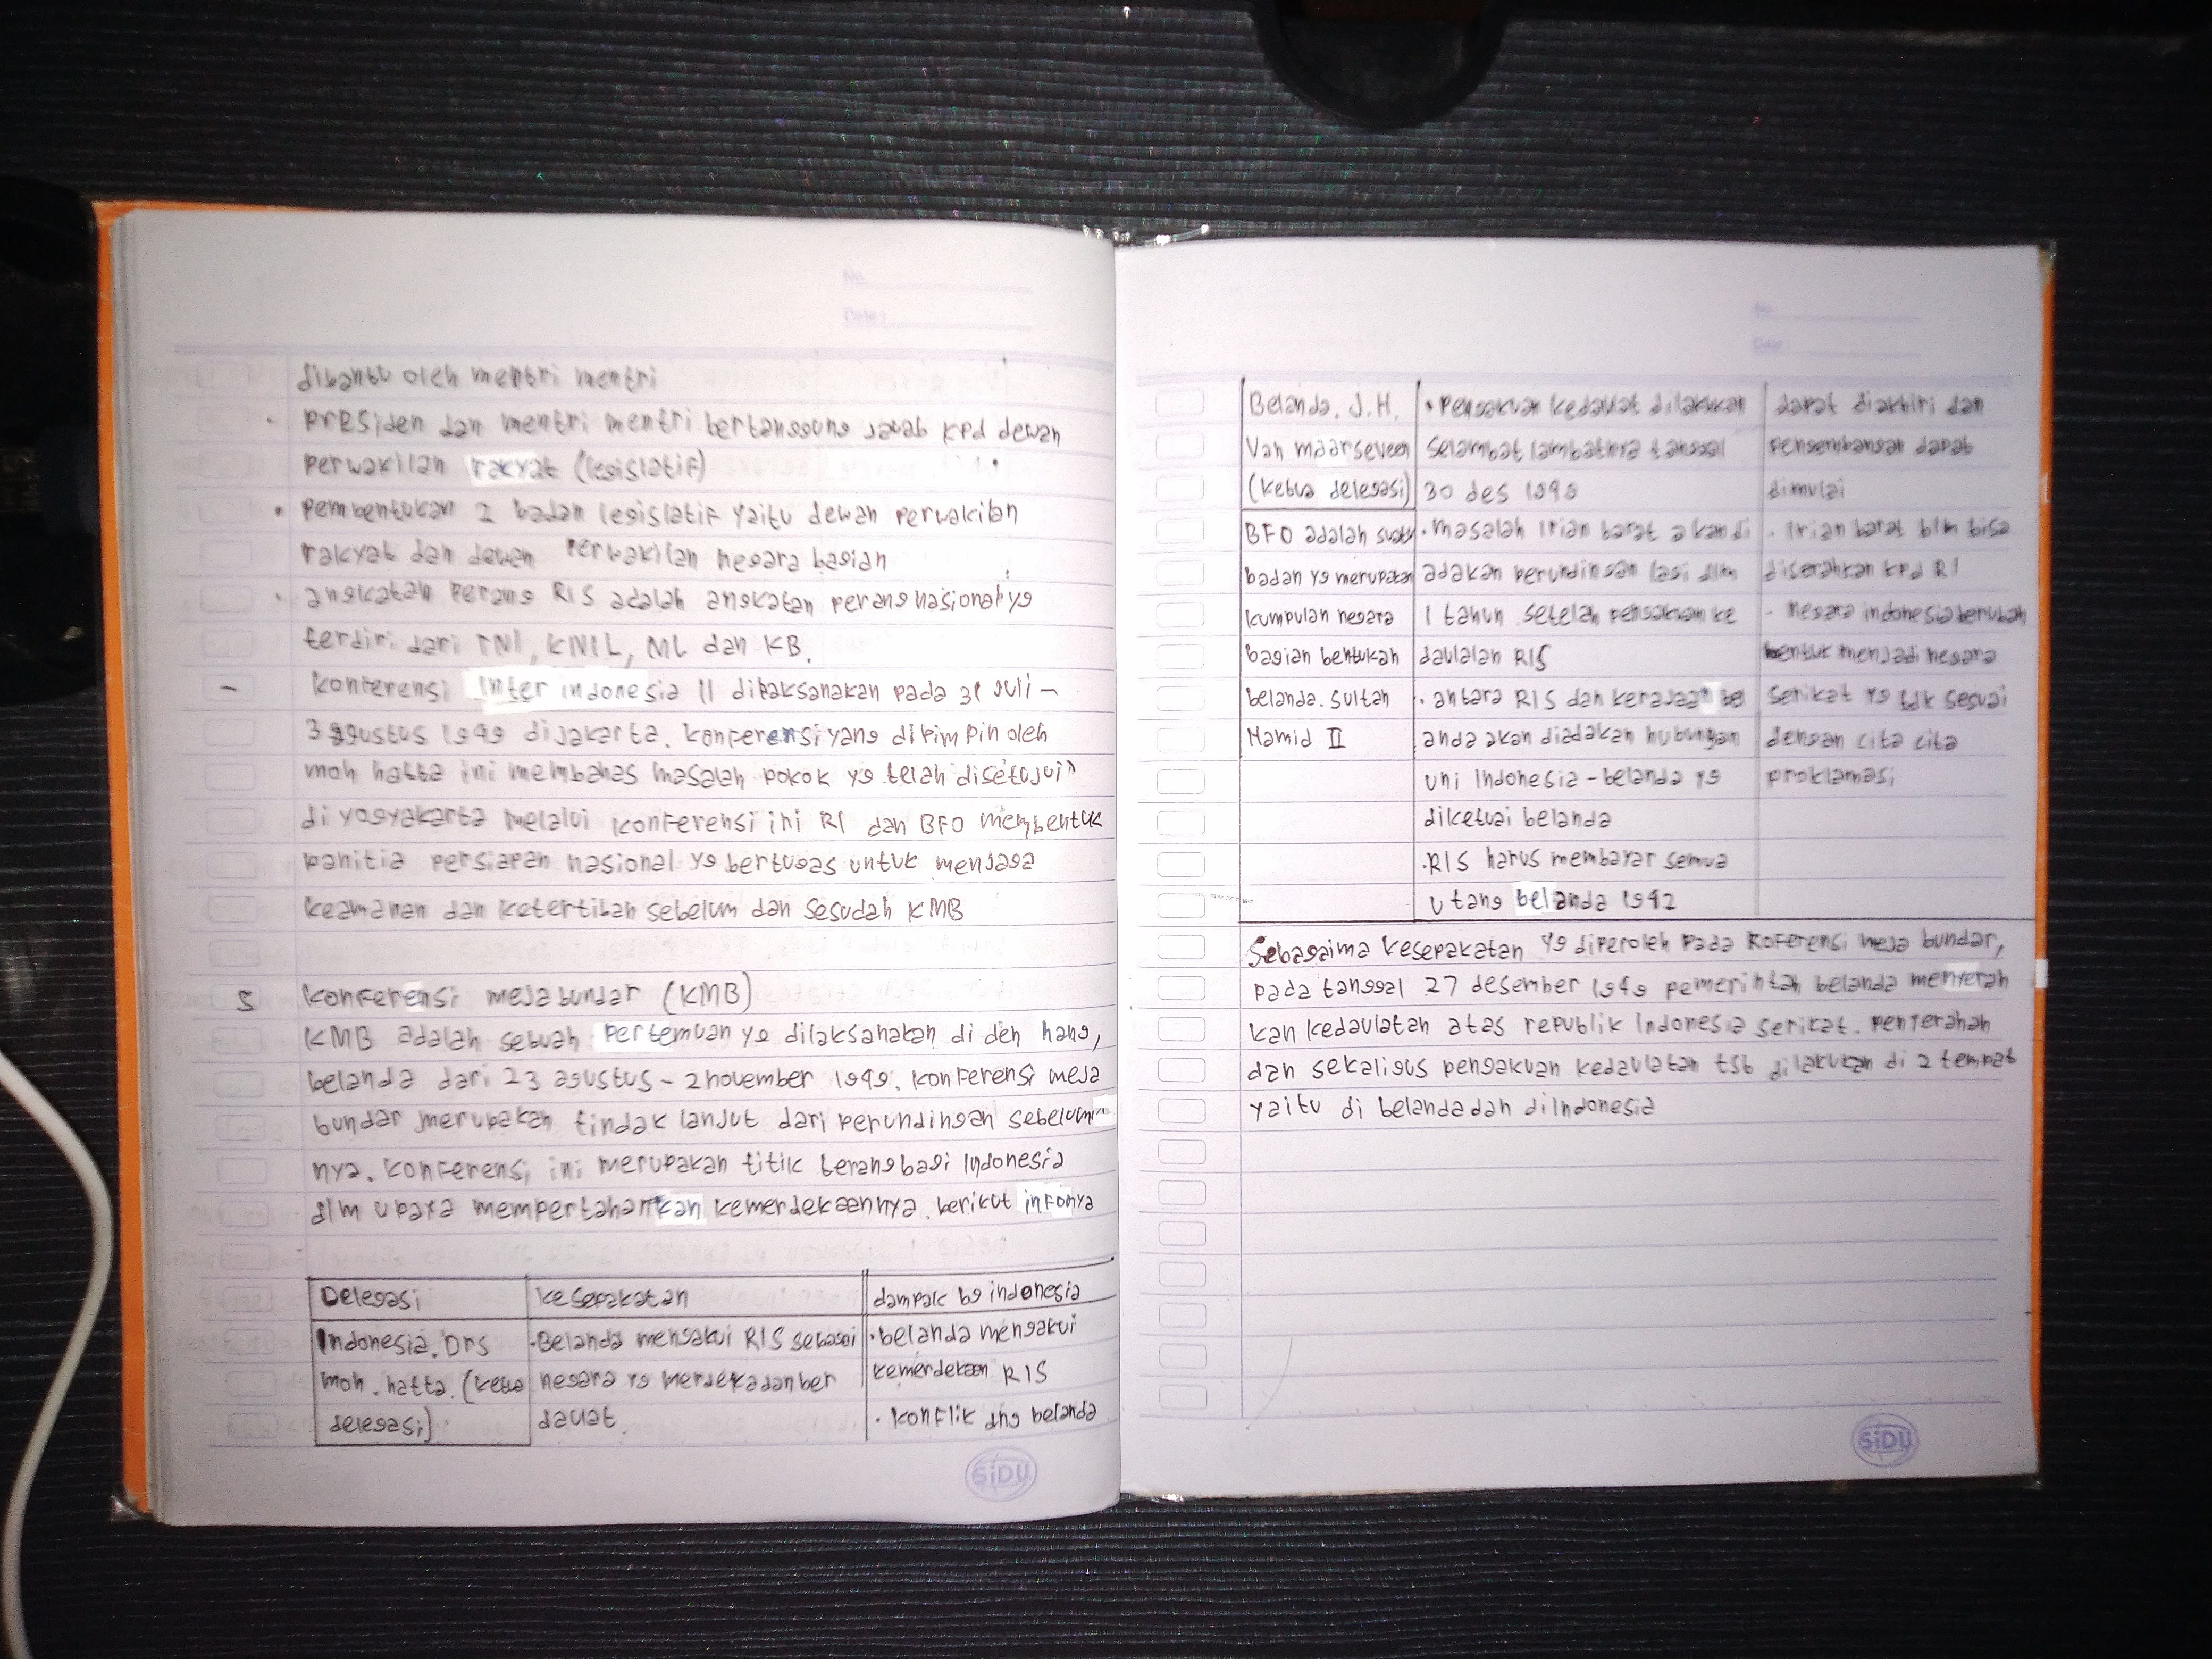 No.
Date :
dibantu oleh mentri mentri
• presiden dan mentri mentri bertanggung jawab kpd dewan
perwakilan rakyat (legislatif)
• pembentukan 2 badan legislatif yaitu dewan perwakilan
rakyat dan dewan perwakilan negara bagian
• angkatan perang RIS adalah angkatan perang nasional yg
terdiri dari TNI, KNIL, ML dan KB.
- konferensi Inter indonesia II dilaksanakan pada 31 juli -
3 agustus 1949 dijakarta. konferensi yang dipimpin oleh
moh hatta ini membahas masalah pokok yg telah disetujui"
di yogyakarta melalui konferensi ini RI dan BFO membentuk
panitia persiapan nasional yg bertugas untuk menjaga
keamanan dan ketertiban sebelum dan sesudah KMB
5 konferensi meja bundar (KMB)
KMB adalah sebuah pertemuan yg dilaksanakan di den hang,
belanda dari 23 agustus - 2 november 1949. konferensi meja
bundar merupakan tindak lanjut dari perundingan sebelum
nya. konferensi ini merupakan titik terang bagi Indonesia
dlm upaya mempertahankan kemerdekaannya. berikut infonya
Delegasi kesepakatan dampak bg indonesia
Indonesia. Drs •Belanda mengakui RIS sebagai •belanda mengakui
moh. hatta. (ketua negara yg merdeka dan ber kemerdekaan RIS
delegasi) daulat. • konflik dng belanda
SiDU
No
Date
Belanda. J.H. •Pengakuan kedaulat dilakukan dapat diakhiri dan
Van maarseveen selambat lambatnya tanggal pengembangan dapat
(ketua delegasi) 30 des 1949 dimulai
BFO adalah suatu •masalah Irian barat akan di - Irian barat blm bisa
badan yg merupakan adakan perundingan lagi dlm diserahkan kpd RI
kumpulan negara 1 tahun setelah pengakuan ke - negara indonesia berubah
bagian bentukan daulatan RIS bentuk menjadi negara
belanda. sultan • antara RIS dan kerajaan bel serikat yg tdk sesuai
Hamid II anda akan diadakan hubungan dengan cita cita
uni Indonesia - belanda yg proklamasi
diketuai belanda
•RIS harus membayar semua
utang belanda 1942
Sebagaima kesepakatan yg diperoleh pada Koferensi meja bundar,
pada tanggal 27 desember 1949 pemerintah belanda menyerah
kan kedaulatan atas republik Indonesia serikat. penyerahan
dan sekaligus pengakuan kedaulatan tsb dilakukan di 2 tempat
yaitu di belanda dan diIndonesia
SiDU